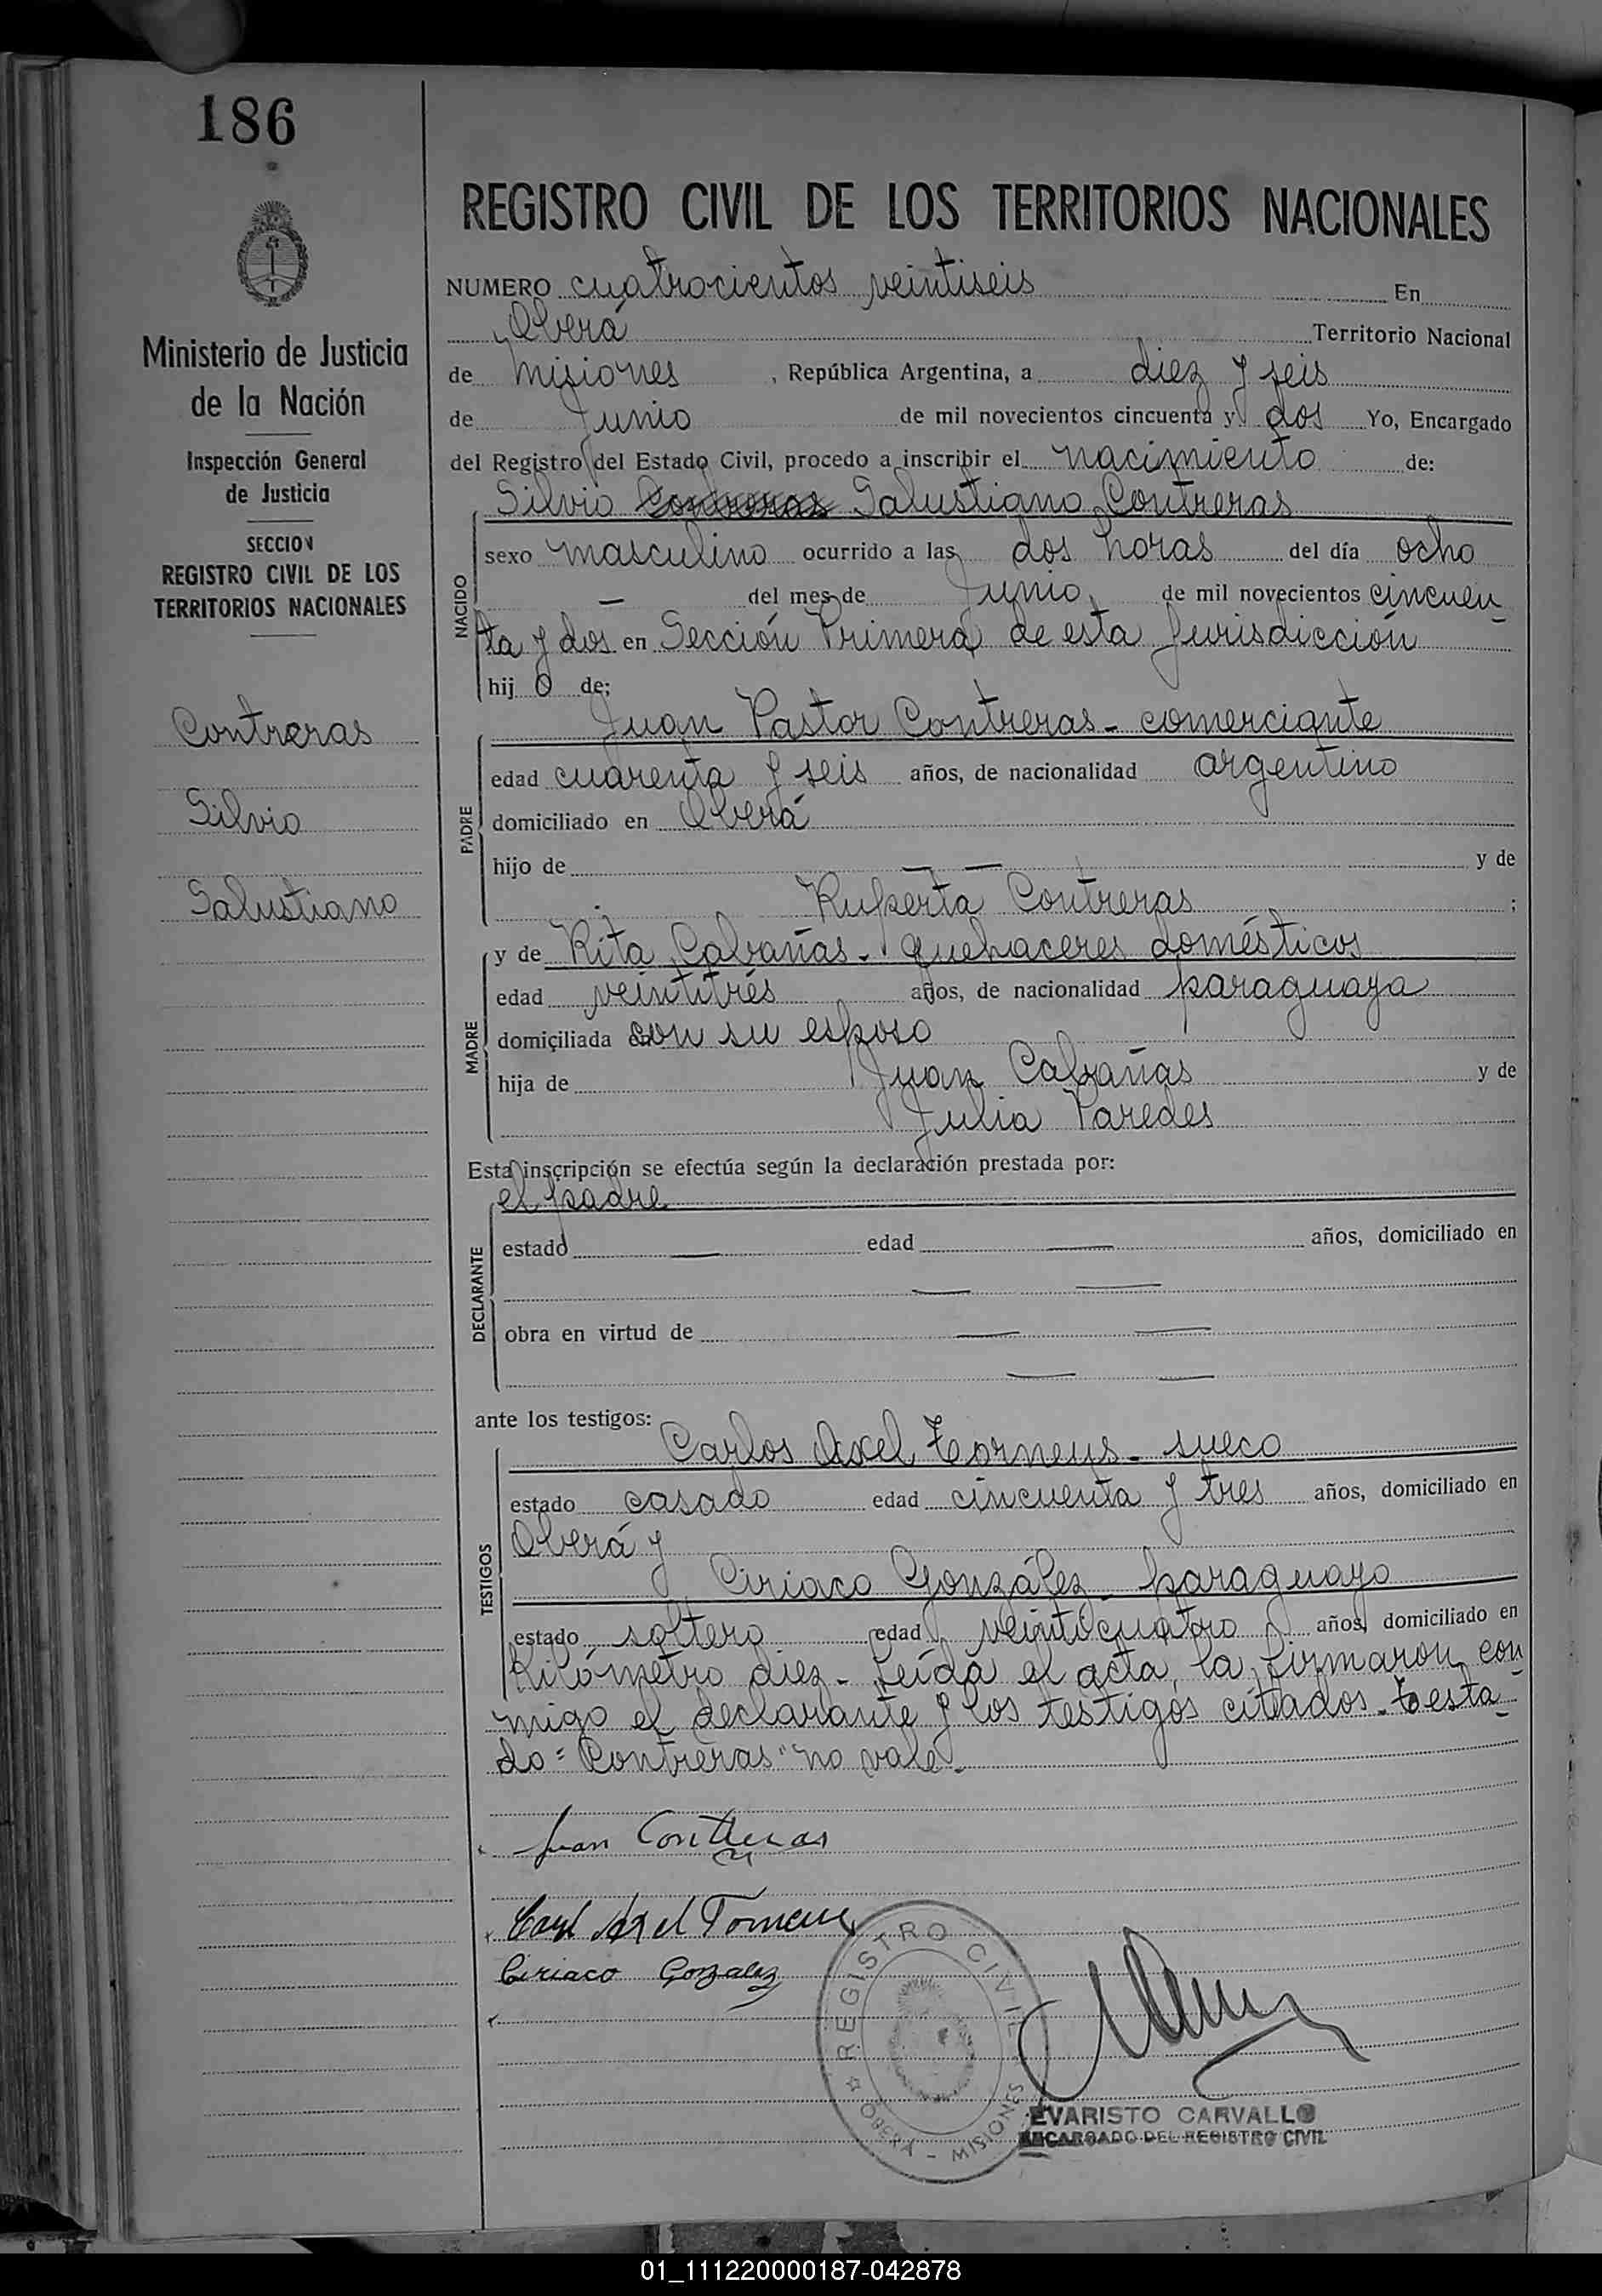 186
Ministerio de Justicia
de la Nación
Inspección General
de Justicia
SECCION
REGISTRO CIVIL DE LOS
TERRITORIOS NACIONALES
Contreras
Silvio
Salustiano
REGISTRO CIVIL DE LOS TERRITORIOS NACIONALES
NUMERO cuatrocientos veintiseis En
Oberá Territorio Nacional
de Misiones , República Argentina, a diez y seis
de Junio de mil novecientos cincuenta y dos Yo, Encargado
del Registro del Estado Civil, procedo a inscribir el nacimiento de:
NACIDO
Silvio Contreras Salustiano Contreras
sexo masculino ocurrido a las dos horas del día ocho
— del mes de Junio de mil novecientos cincuen-
ta y dos en Sección Primera de esta Jurisdicción
hij o de:
PADRE
Juan Pastor Contreras - comerciante
edad cuarenta y seis años, de nacionalidad argentino
domiciliado en Oberá
hijo de — — y de
Ruperta Contreras ;
MADRE
y de Rita Cabañas - quehaceres domésticos
edad veintitrés años, de nacionalidad paraguaya
domiciliada con su esposo
hija de Juan Cabañas y de
Julia Paredes
Esta inscripción se efectúa según la declaración prestada por:
DECLARANTE
el padre
estado — edad — años, domiciliado en
— —
obra en virtud de — —
— —
ante los testigos:
TESTIGOS
Carlos Axel Torneus - sueco
estado casado edad cincuenta y tres años, domiciliado en
Oberá y
Ciriaco González - paraguayo
estado soltero edad veinticuatro años, domiciliado en
Kilómetro diez - Leída el acta, la firmaron con-
migo el declarante y los testigos citados - Testa-
do = "Contreras" no vale -
Juan Contreras
Carl Axel Torneus
Ciriaco Gonzalez
REGISTRO CIVIL
OBERÁ - MISIONES
EVARISTO CARVALLO
ENCARGADO DEL REGISTRO CIVIL
01_111220000187-042878